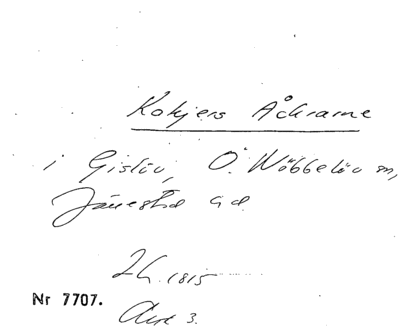 Kokjers Åkrarne
i Gislöv, Ö. Nöbbelöv sn,
Järrestad hd
2/6 1815
Nr 7707.
Akt 3.